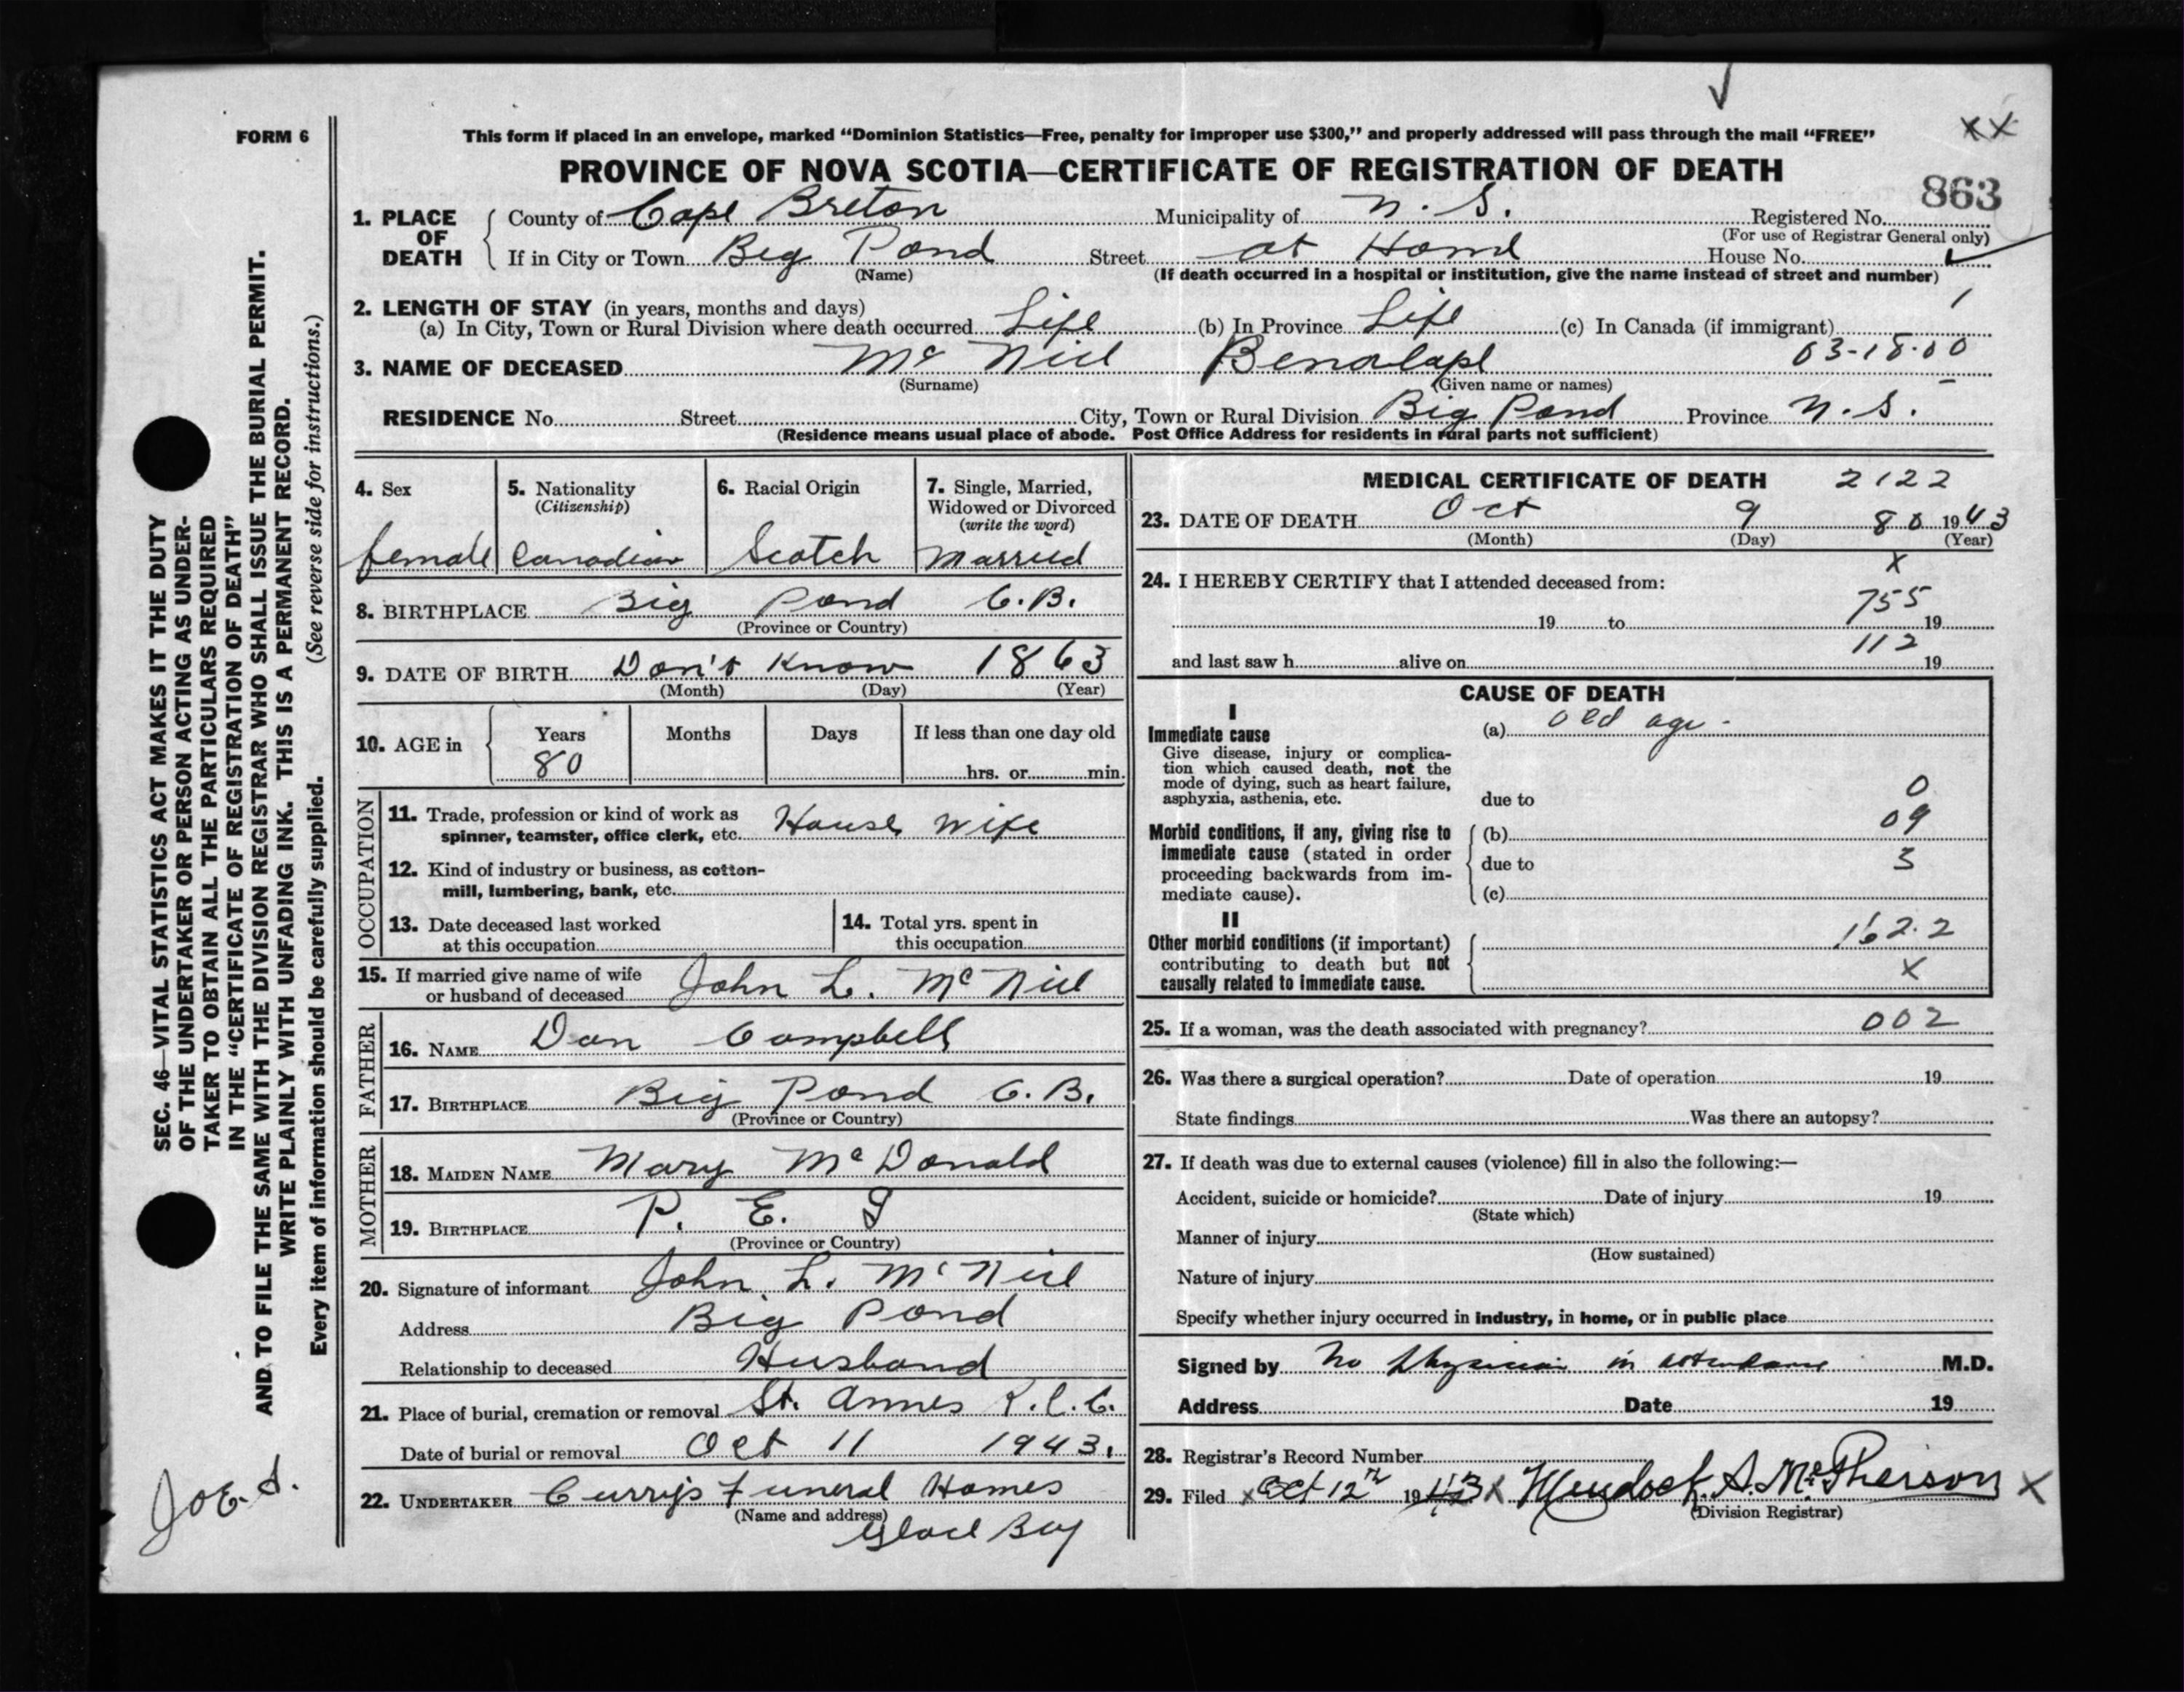 FORM 6
This form if placed in an envelope, marked “Dominion Statistics—Free, penalty for improper use $300,” and properly addressed will pass through the mail “FREE”
XX
PROVINCE OF NOVA SCOTIA—CERTIFICATE OF REGISTRATION OF DEATH
863
1. PLACE OF DEATH
County of Cape Breton Municipality of N. S. Registered No.
(For use of Registrar General only)
If in City or Town Big Pond Street at Home House No.
(Name) (If death occurred in a hospital or institution, give the name instead of street and number)
2. LENGTH OF STAY (in years, months and days)
(a) In City, Town or Rural Division where death occurred Life (b) In Province Life (c) In Canada (if immigrant)
3. NAME OF DECEASED Mc Niel
(Surname) (Given name or names)
RESIDENCE No. Street City, Town or Rural Division Big Pond Province N. S.
(Residence means usual place of abode. Post Office Address for residents in rural parts not sufficient)
4. Sex
female
5. Nationality
(Citizenship)
Canadian
6. Racial Origin
Scotch
7. Single, Married,
Widowed or Divorced
(write the word)
Married
8. BIRTHPLACE Big Pond C. B.
(Province or Country)
9. DATE OF BIRTH Don't Know 1863
(Month) (Day) (Year)
10. AGE in
Years Months Days If less than one day old
80 hrs. or min.
OCCUPATION
11. Trade, profession or kind of work as
spinner, teamster, office clerk, etc. House Wife
12. Kind of industry or business, as cotton-
mill, lumbering, bank, etc.
13. Date deceased last worked
at this occupation
14. Total yrs. spent in
this occupation
15. If married give name of wife
or husband of deceased John L. McNiel
FATHER
16. NAME Dan Campbell
17. BIRTHPLACE Big Pond C. B.
(Province or Country)
MOTHER
18. MAIDEN NAME Mary McDonald
19. BIRTHPLACE P. E. I
(Province or Country)
20. Signature of informant John L. McNeil
Address Big Pond
Relationship to deceased Husband
21. Place of burial, cremation or removal St. Annes R. C. C.
Date of burial or removal Oct 11 1943.
22. UNDERTAKER Currys Funeral Homes
(Name and address)
Glace Bay
MEDICAL CERTIFICATE OF DEATH 2122
23. DATE OF DEATH Oct 9 80 1943
(Month) (Day) (Year)
X
24. I HEREBY CERTIFY that I attended deceased from:
755
19 to 19
112
and last saw h alive on 19
CAUSE OF DEATH
I
Immediate cause
Give disease, injury or complica-
tion which caused death, not the
mode of dying, such as heart failure,
asphyxia, asthenia, etc.
(a) old age -
due to 0
Morbid conditions, if any, giving rise to
immediate cause (stated in order
proceeding backwards from im-
mediate cause).
(b) 09
due to 3
(c)
II
Other morbid conditions (if important)
contributing to death but not
causally related to immediate cause.
162.2
X
25. If a woman, was the death associated with pregnancy? 002
26. Was there a surgical operation? Date of operation 19
State findings Was there an autopsy?
27. If death was due to external causes (violence) fill in also the following:—
Accident, suicide or homicide? Date of injury 19
(State which)
Manner of injury
(How sustained)
Nature of injury
Specify whether injury occurred in industry, in home, or in public place
Signed by No physician in attendance M.D.
Address Date 19
28. Registrar's Record Number
29. Filed x Oct 12th 1943 X Murdock A. McPherson X
(Division Registrar)
SEC. 46—VITAL STATISTICS ACT MAKES IT THE DUTY
OF THE UNDERTAKER OR PERSON ACTING AS UNDER-
TAKER TO OBTAIN ALL THE PARTICULARS REQUIRED
IN THE “CERTIFICATE OF REGISTRATION OF DEATH”
AND TO FILE THE SAME WITH THE DIVISION REGISTRAR WHO SHALL ISSUE THE BURIAL PERMIT.
WRITE PLAINLY WITH UNFADING INK. THIS IS A PERMANENT RECORD.
Every item of information should be carefully supplied. (See reverse side for instructions.)